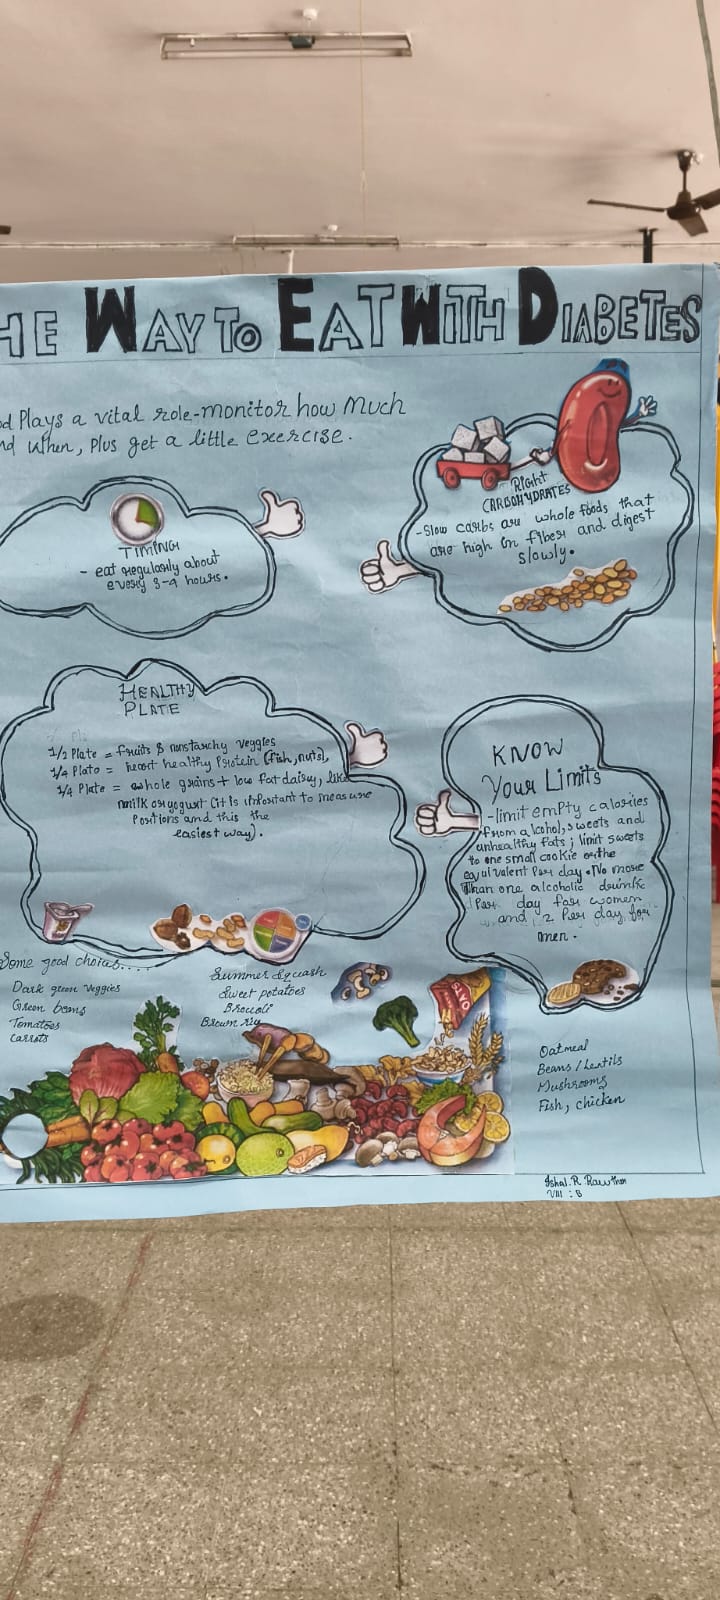 HE WAY TO EAT WITH DIABETES
d Plays a vital role-monitor how much
nd when, plus get a little exercise.
TIMING
- eat regularly about
every 3-4 hours.
RIGHT
CARBOHYDRATES
-Slow carbs are whole foods that
are high in fiber and digest
slowly.
HEALTHY
PLATE
1/2 Plate = fruits & nonstarchy veggies
1/4 Plate = heart healthy Protein (fish, nuts),
1/4 Plate = whole grains + low fat dairy, like
milk or yogurt (it is important to measure
Portions and this the
easiest way).
KNOW
YOUR LIMITS
-limit empty calories
from alcohol, sweets and
unhealthy fats ; limit sweets
to one small cookie or the
equivalent Per day. No more
than one alcoholic drink
Per day for women
and 2 Per day for
men.
Some good choices....
Dark green veggies
Green beans
Tomatoes
Carrots
Summer Squash
Sweet potatoes
Broccoli
Brown rice
OATS
Oatmeal
Beans / Lentils
Mushrooms
Fish, chicken
Ishal. R. Rawther
VIII : B